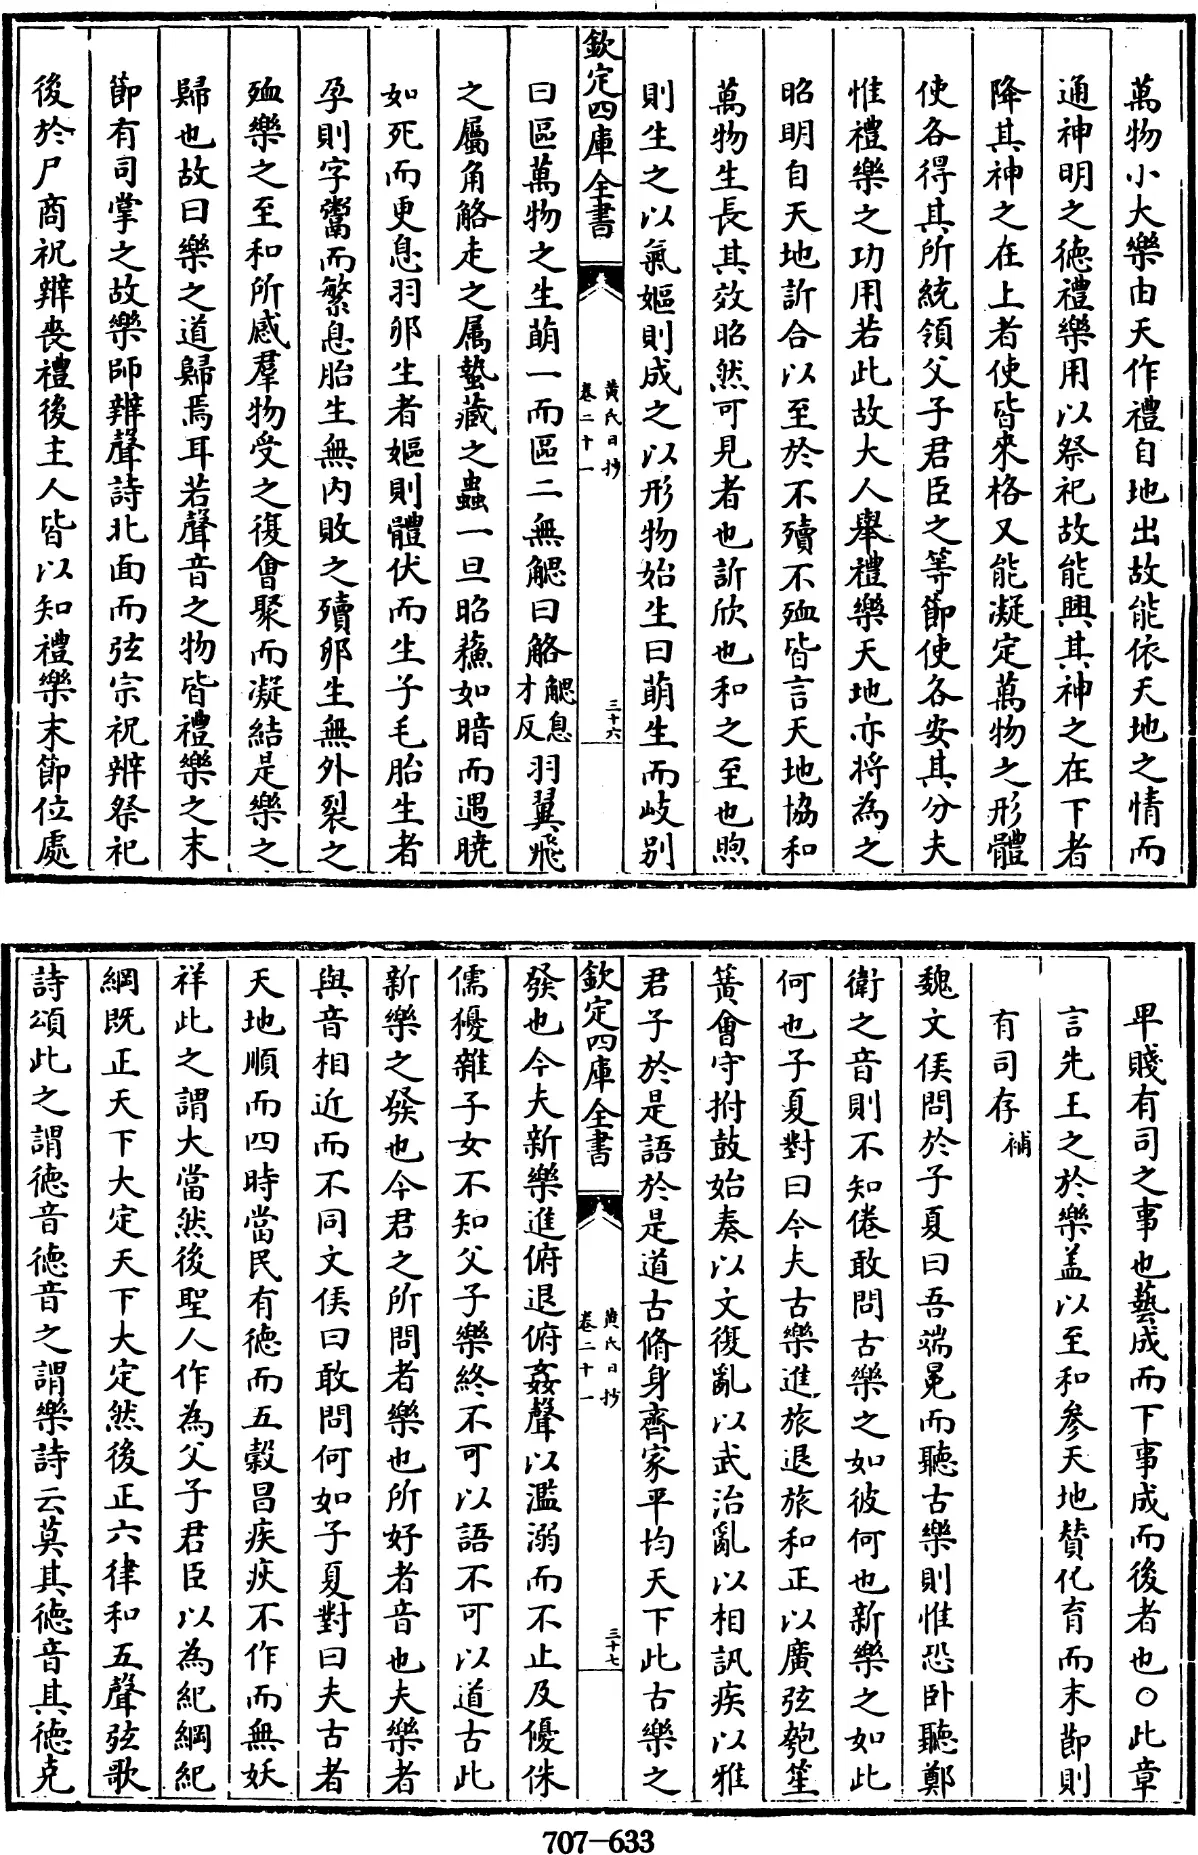 萬物小大樂由天作禮自地出故能依天地之情而
通神明之德禮樂用以祭祀故能興其神之在下者
降其神之在上者使皆來格又能凝定萬物之形體
使各得其所統領父子君臣之等節使各安其分夫
惟禮樂之功用若此故大人舉禮樂天地亦將為之
昭明自天地訢合以至於不殰不殈皆言天地協和
萬物生長其效昭然可見者也訢欣也和之至也煦
則生之以氣嫗則成之以形物始生曰萌生而岐别
欽定四庫全書
黄氏日抄
卷二十一
三十六
曰區萬物之生萌一而區二無䚡曰觡䚡息才反羽翼飛
之屬角觡走之属蟄藏之蟲一旦昭蘓如暗而遇曉
如死而更息羽卵生者嫗則體伏而生子毛胎生者
孕則字鬻而繁息胎生無内敗之殰卵生無外裂之
殈樂之至和所感羣物受之復會聚而凝結是樂之
歸也故曰樂之道歸焉耳若聲音之物皆禮樂之末
節有司掌之故樂師辨聲詩北面而弦宗祝辨祭祀
後於尸商祝辨喪禮後主人皆以知禮樂末節位處
卑賤有司之事也藝成而下事成而後者也○此章
言先王之於樂盖以至和參天地賛化育而末節則
有司存補
魏文侯問於子夏曰吾端冕而聽古樂則惟恐卧聽鄭
衛之音則不知倦敢問古樂之如彼何也新樂之如此
何也子夏對曰今夫古樂進旅退旅和正以廣弦匏笙
簧會守拊鼓始奏以文復亂以武治亂以相訊疾以雅
君子於是語於是道古脩身齊家平均天下此古樂之
欽定四庫全書
黄氏日抄
卷二十一
三十七
發也今夫新樂進俯退俯姦聲以濫溺而不止及優侏
儒獶雜子女不知父子樂終不可以語不可以道古此
新樂之發也今君之所問者樂也所好者音也夫樂者
與音相近而不同文侯曰敢問何如子夏對曰夫古者
天地順而四時當民有德而五穀昌疾疢不作而無妖
祥此之謂大當然後聖人作為父子君臣以為紀綱紀
綱既正天下大定天下大定然後正六律和五聲弦歌
詩頌此之謂德音德音之謂樂詩云莫其德音其德克
707-633